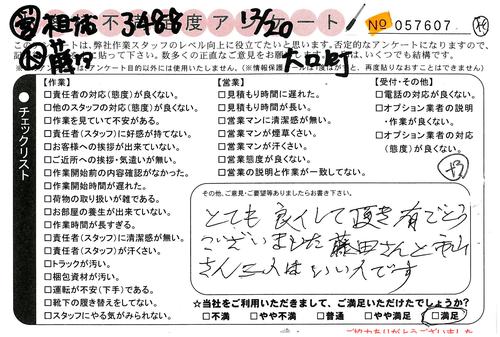 不満度アンケート
No 057607
このアンケートは、弊社作業スタッフのレベル向上に役立てたいと思います。否定的なアンケートになりますので、
※アンケート目的以外には使用いたしません。
チェックリスト
【作業】
□責任者の対応(態度)が良くない。
□他のスタッフの対応(態度)が良くない。
□作業を見ていて不安がある。
□責任者(スタッフ)に好感が持てない。
□お客様への挨拶が出来ていない。
□ご近所への挨拶・気遣いが無い。
□作業開始前の内容確認がなかった。
□作業開始時間が遅れた。
□荷物の取り扱いが雑である。
□お部屋の養生が出来ていない。
□作業時間が長すぎる。
□責任者(スタッフ)に清潔感が無い。
□責任者(スタッフ)が汗くさい。
□トラックが汚い。
□梱包資材が汚い。
□運転が不安(下手)である。
□靴下の履き替えをしてない。
□スタッフにやる気がみられない。
【営業】
□見積もり時間に遅れた。
□見積もり時間が長い。
□営業マンに清潔感が無い。
□営業マンが煙草くさい。
□営業マンが汗くさい。
□営業態度が良くない。
□営業の説明と作業が一致してない。
【受付・その他】
□電話の対応が良くない。
□オプション業者の説明
・作業が良くない。
□オプション業者の対応
(態度)が良くない。
その他、ご意見・ご要望等ありましたらお書き下さい。
とても良くして頂き有でとう
ございました 藤田さんと
さん三人はいい人です
☆当社をご利用いただきまして、ご満足いただけたでしょうか?
□不満 □やや不満 □普通 □やや満足 □満足
ご協力ありがとうございました